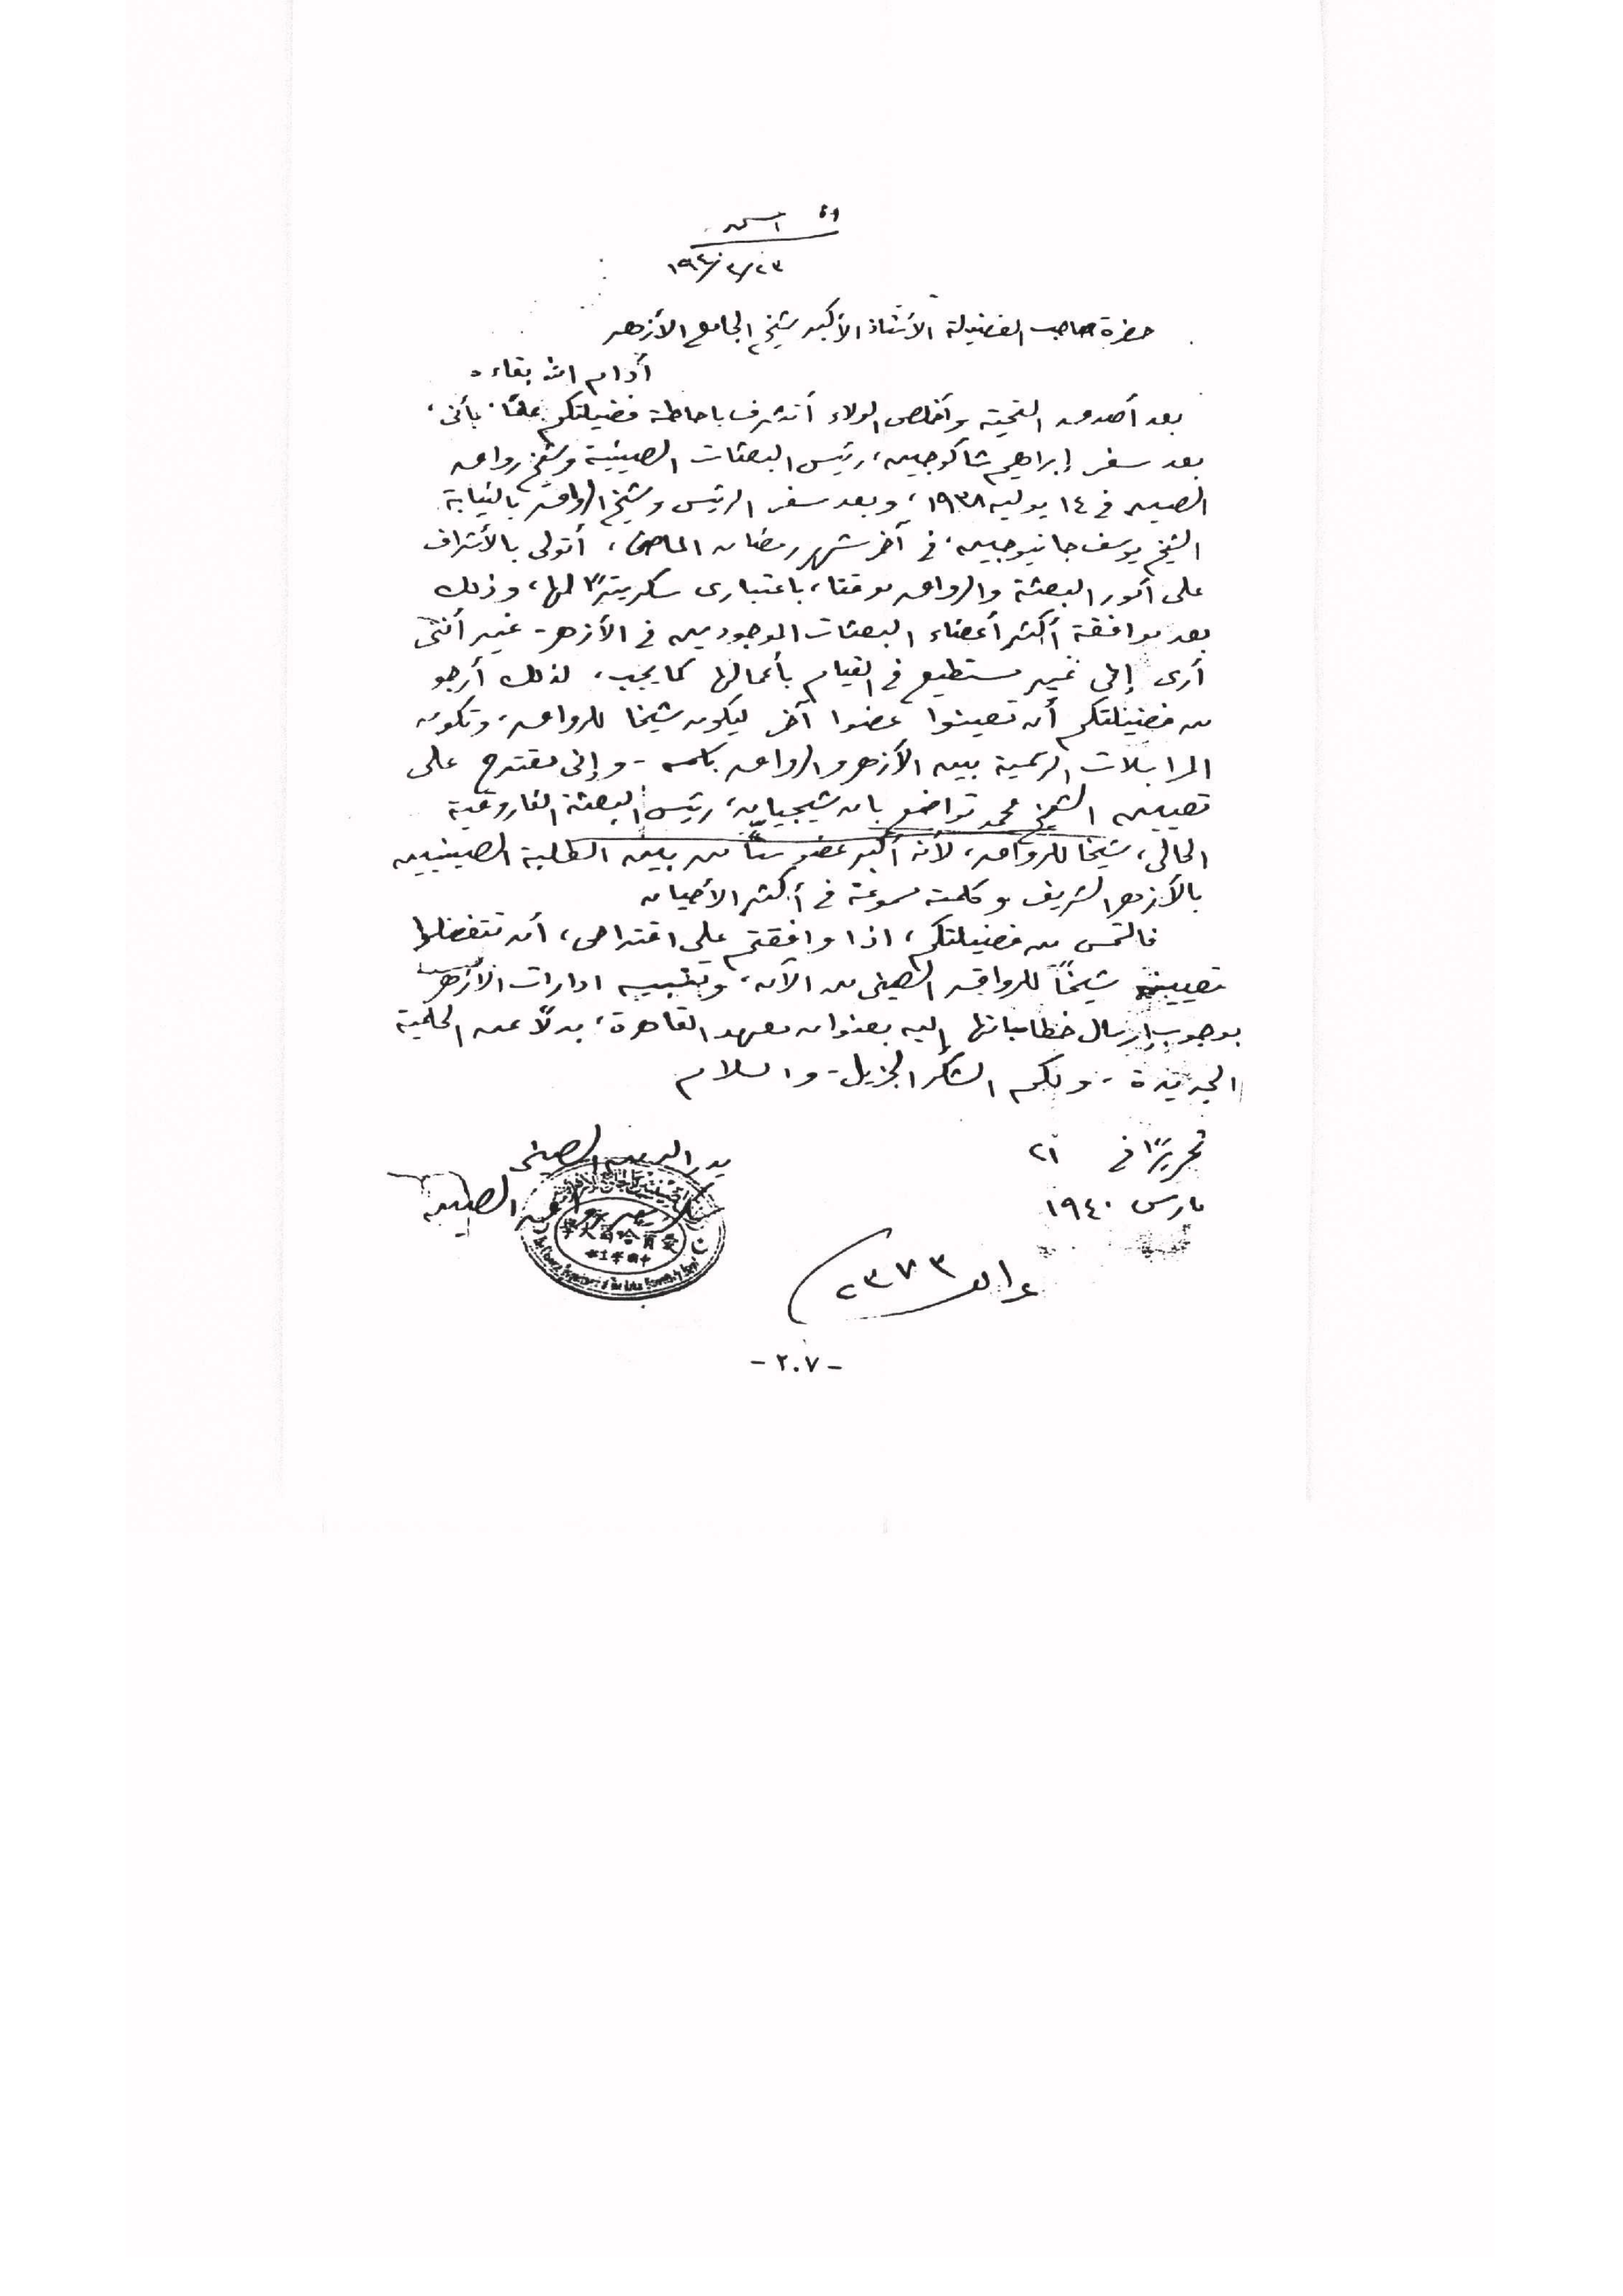 ١٩٤٠/٣/٢٣
حضرة صاحب الفضيلة الأستاذ الأكبر شيخ الجامع الأزهر
أدام الله بقاءه
بعد أصدق التحية وأخلص الولاء أتشرف باحاطة فضيلتكم علمًا بأنى،
بعد سفر إبراهيم شاكوجين، رئيس البعثات الصينية وشيخ رواق
الصين فى ١٤ يوليه ١٩٣٨، وبعد سفر الرئيس وشيخ الرواق بالنيابة
الشيخ يوسف جانيوجين، فى آخر شهر رمضان الماضى، أتولى بالأشراف
على أمور البعثة والرواق موقتا، باعتبارى سكريتيرًا لها، وذلك
بعد موافقة أكثر أعضاء البعثات الموجودين فى الأزهر - غير أننى
أرى إنى غير مستطيع فى القيام بأعمالها كما يجب، لذلك أرجو
من فضيلتكم أن تعينوا عضوا آخر ليكون شيخا للرواق، وتكون
المراسلات الرسمية بين الأزهر والرواق باسمه - وإنى مقترح على
تعيين الشيخ محمد تواضع بان شيجيان، رئيس البعثة الفاروقية
الحالى، شيخا للرواق، لأنه أكبر عضو سنًّا من بين الطلبة الصينيين
بالأزهر الشريف وكلمته مسموعة فى أكثر الأحيان
فالتمس من فضيلتكم، اذا وافقتم على اقتراحى، أن تتفضلوا
تعيينه شيخًا للرواق الصينى من الآن، وتنبيه ادارات الأزهر
بوجوب إرسال خطاباتها إليه بعنوان معهد القاهرة، بدلًا عن الحلمية
الجديدة - ولكم الشكر الجزيل - والسلام
تحريرًا فى ٢١ بدر الدين الصينى
مارس ١٩٤٠ سكرتير رواق الصين
٢٣٧٣
- ٢٠٧ -